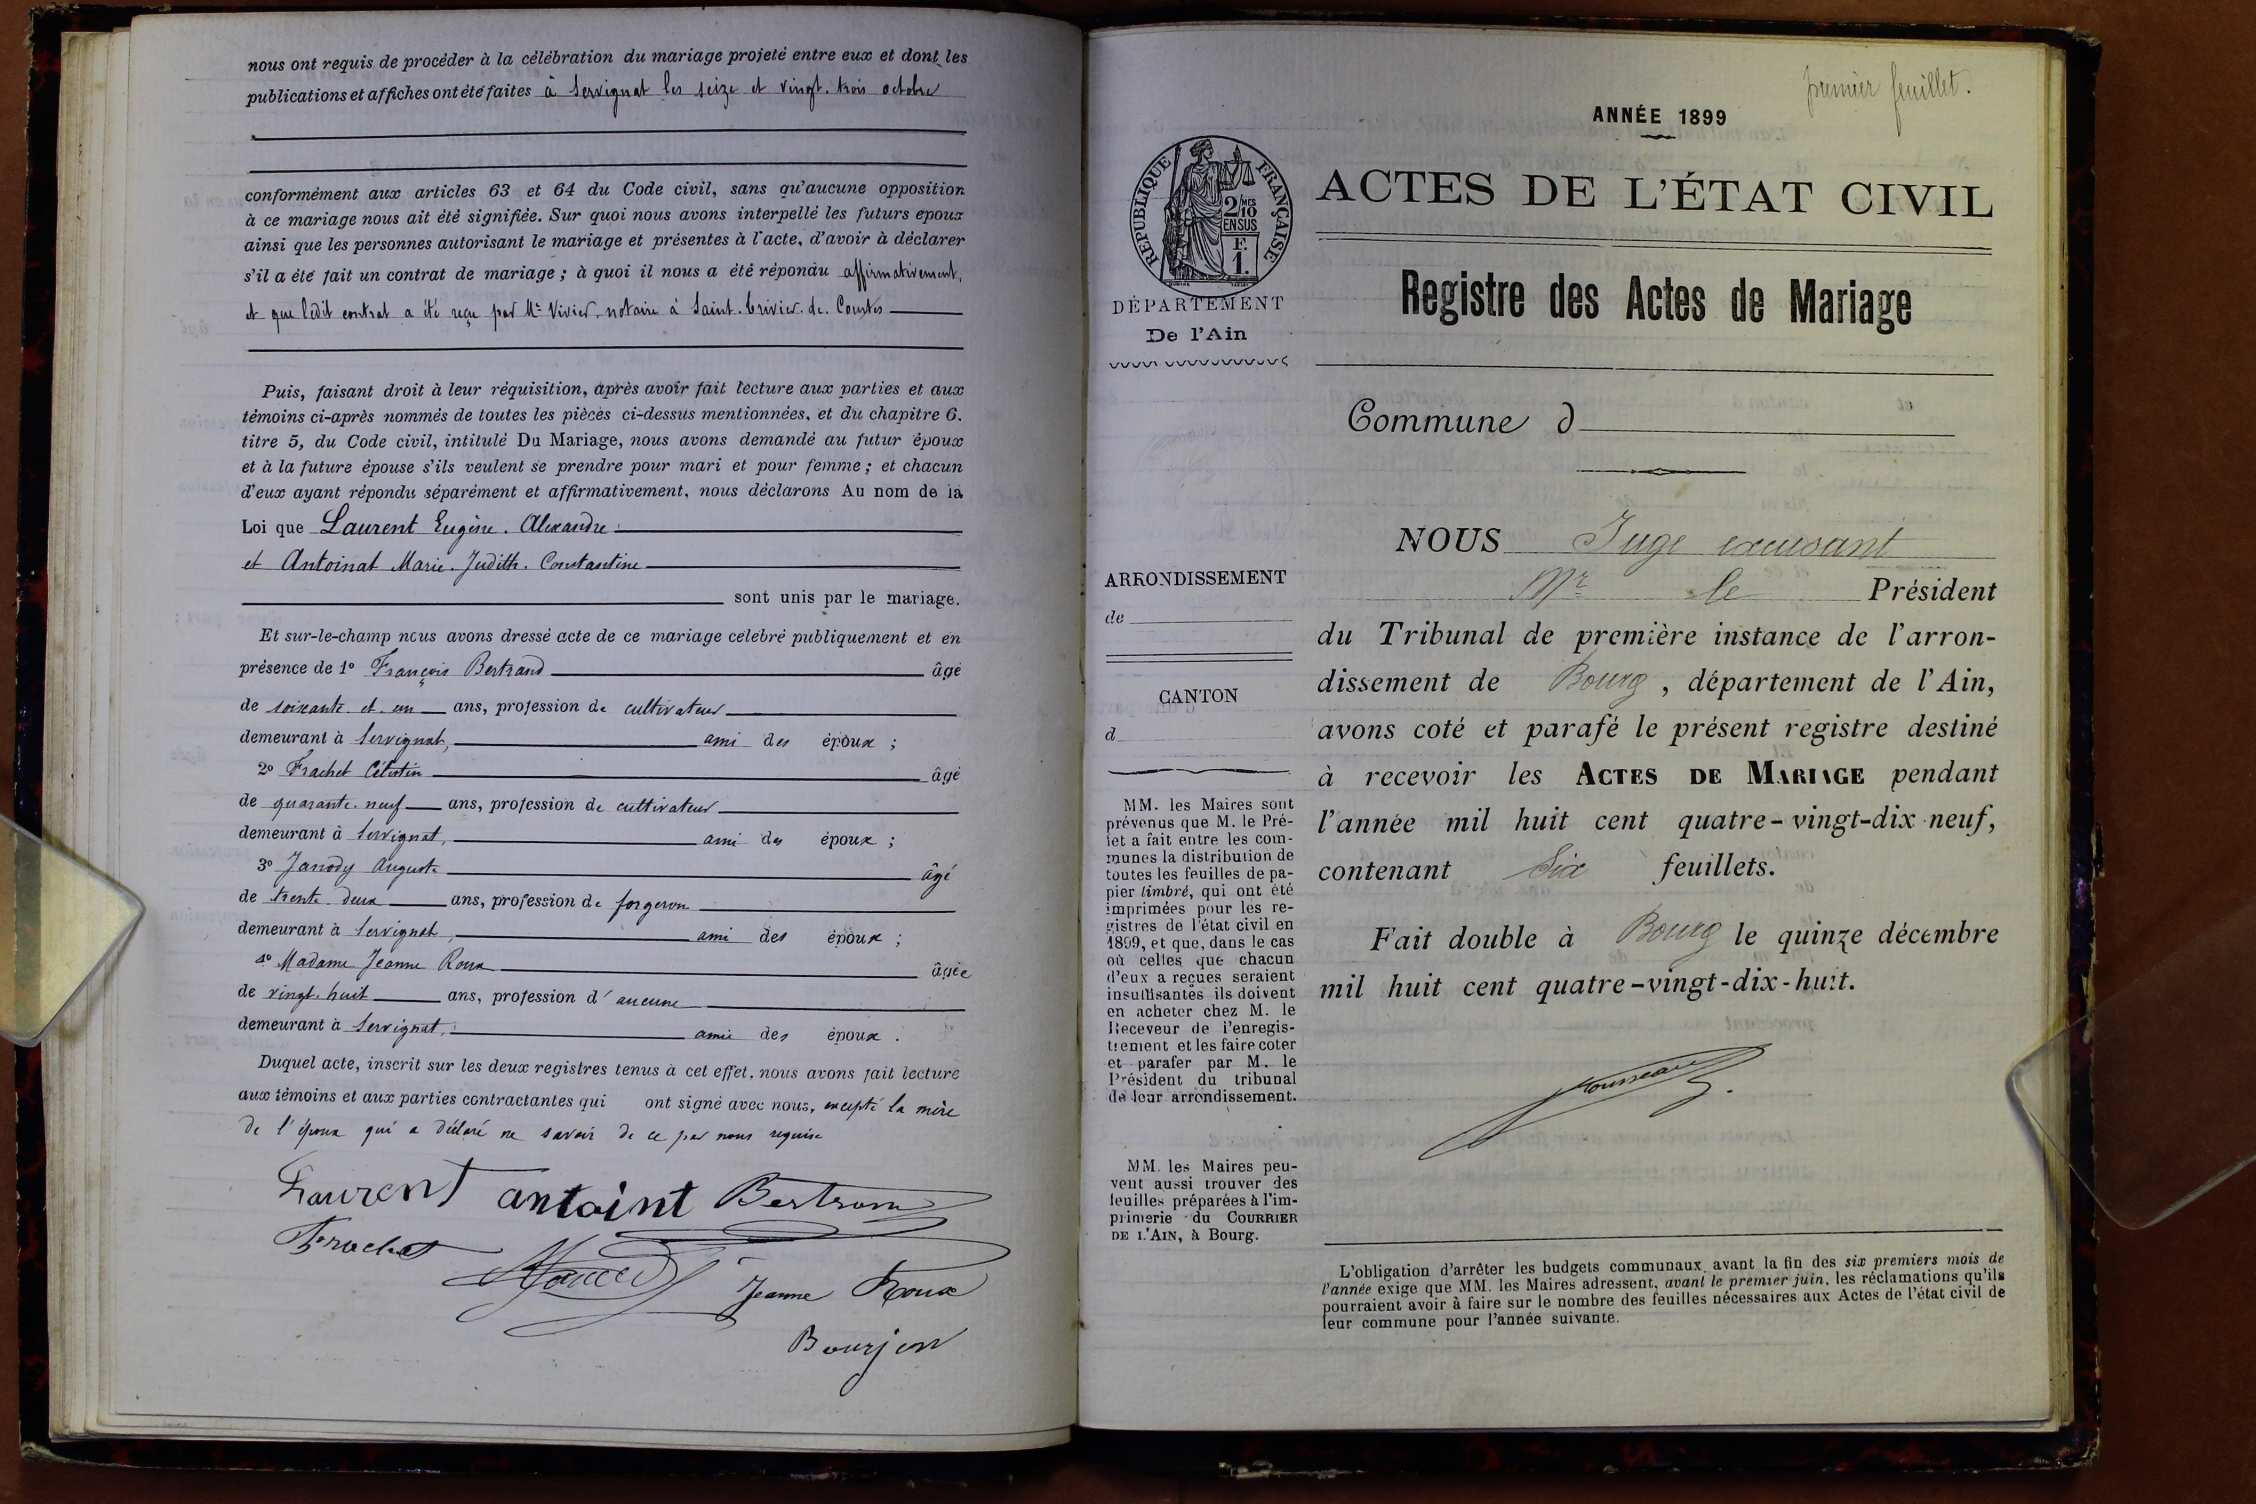 nous ont requis de procéder à la célébration du mariage projeté entre eux et dont les
publications et affiches ont été faites à Servignat les seize et vingt-trois octobre
conformément aux articles 63 et 64 du Code civil, sans qu'aucune opposition
à ce mariage nous ait été signifiée. Sur quoi nous avons interpellé les futurs époux
ainsi que les personnes autorisant le mariage et présentes à l'acte, d'avoir à déclarer
s'il a été fait un contrat de mariage ; à quoi il nous a été répondu affirmativement,
et que ledit contrat a été reçu par Me Vivier, notaire à Saint-Trivier-de-Courtes
Puis, faisant droit à leur réquisition, après avoir fait lecture aux parties et aux
témoins ci-après nommés de toutes les pièces ci-dessus mentionnées, et du chapitre 6,
titre 5, du Code civil, intitulé Du Mariage, nous avons demandé au futur époux
et à la future épouse s'ils veulent se prendre pour mari et pour femme ; et chacun
d'eux ayant répondu séparément et affirmativement, nous déclarons Au nom de la
Loi que Laurent Eugène Alexandre
et Antoinat Marie Judith Constantine
sont unis par le mariage.
Et sur-le-champ nous avons dressé acte de ce mariage célébré publiquement et en
présence de 1º François Bertrand âgé
de soixante et un ans, profession de cultivateur
demeurant à Servignat, ami des époux ;
2º Frachet Célestin âgé
de quarante-neuf ans, profession de cultivateur
demeurant à Servignat, ami des époux ;
3º Janody Auguste âgé
de trente-deux ans, profession de forgeron
demeurant à Servignat, ami des époux ;
4º Madame Jeanne Roux âgée
de vingt-huit ans, profession d'aucune
demeurant à Servignat, amie des époux.
Duquel acte, inscrit sur les deux registres tenus à cet effet, nous avons fait lecture
aux témoins et aux parties contractantes qui ont signé avec nous, excepté la mère
de l'époux qui a déclaré ne savoir de ce par nous requise
Laurent antoint Bertrand
Frachet
Jeanne Roux
Bourjon
premier feuillet.
ANNÉE 1899
RÉPUBLIQUE FRANÇAISE
2/10 MES
EN SUS
F.
1.
DÉPARTEMENT
De l'Ain
ARRONDISSEMENT
de
CANTON
d
MM. les Maires sont
prévenus que M. le Pré-
fet a fait entre les com-
munes la distribution de
toutes les feuilles de pa-
pier timbré, qui ont été
imprimées pour les re-
gistres de l'état civil en
1899, et que, dans le cas
où celles que chacun
d'eux a reçues seraient
insuffisantes ils doivent
en acheter chez M. le
Receveur de l'enregis-
trement et les faire coter
et parafer par M. le
Président du tribunal
de leur arrondissement.
MM. les Maires peu-
vent aussi trouver des
feuilles préparées à l'im-
primerie du COURRIER
DE L'AIN, à Bourg.
ACTES DE L'ÉTAT CIVIL
Registre des Actes de Mariage
Commune d
NOUS Juge excusant
Mr le Président
du Tribunal de première instance de l'arron-
dissement de Bourg, département de l'Ain,
avons coté et parafé le présent registre destiné
à recevoir les ACTES DE MARIAGE pendant
l'année mil huit cent quatre-vingt-dix-neuf,
contenant Six feuillets.
Fait double à Bourg le quinze décembre
mil huit cent quatre-vingt-dix-huit.
L'obligation d'arrêter les budgets communaux avant la fin des six premiers mois de
l'année exige que MM. les Maires adressent, avant le premier juin, les réclamations qu'ils
pourraient avoir à faire sur le nombre des feuilles nécessaires aux Actes de l'état civil de
leur commune pour l'année suivante.